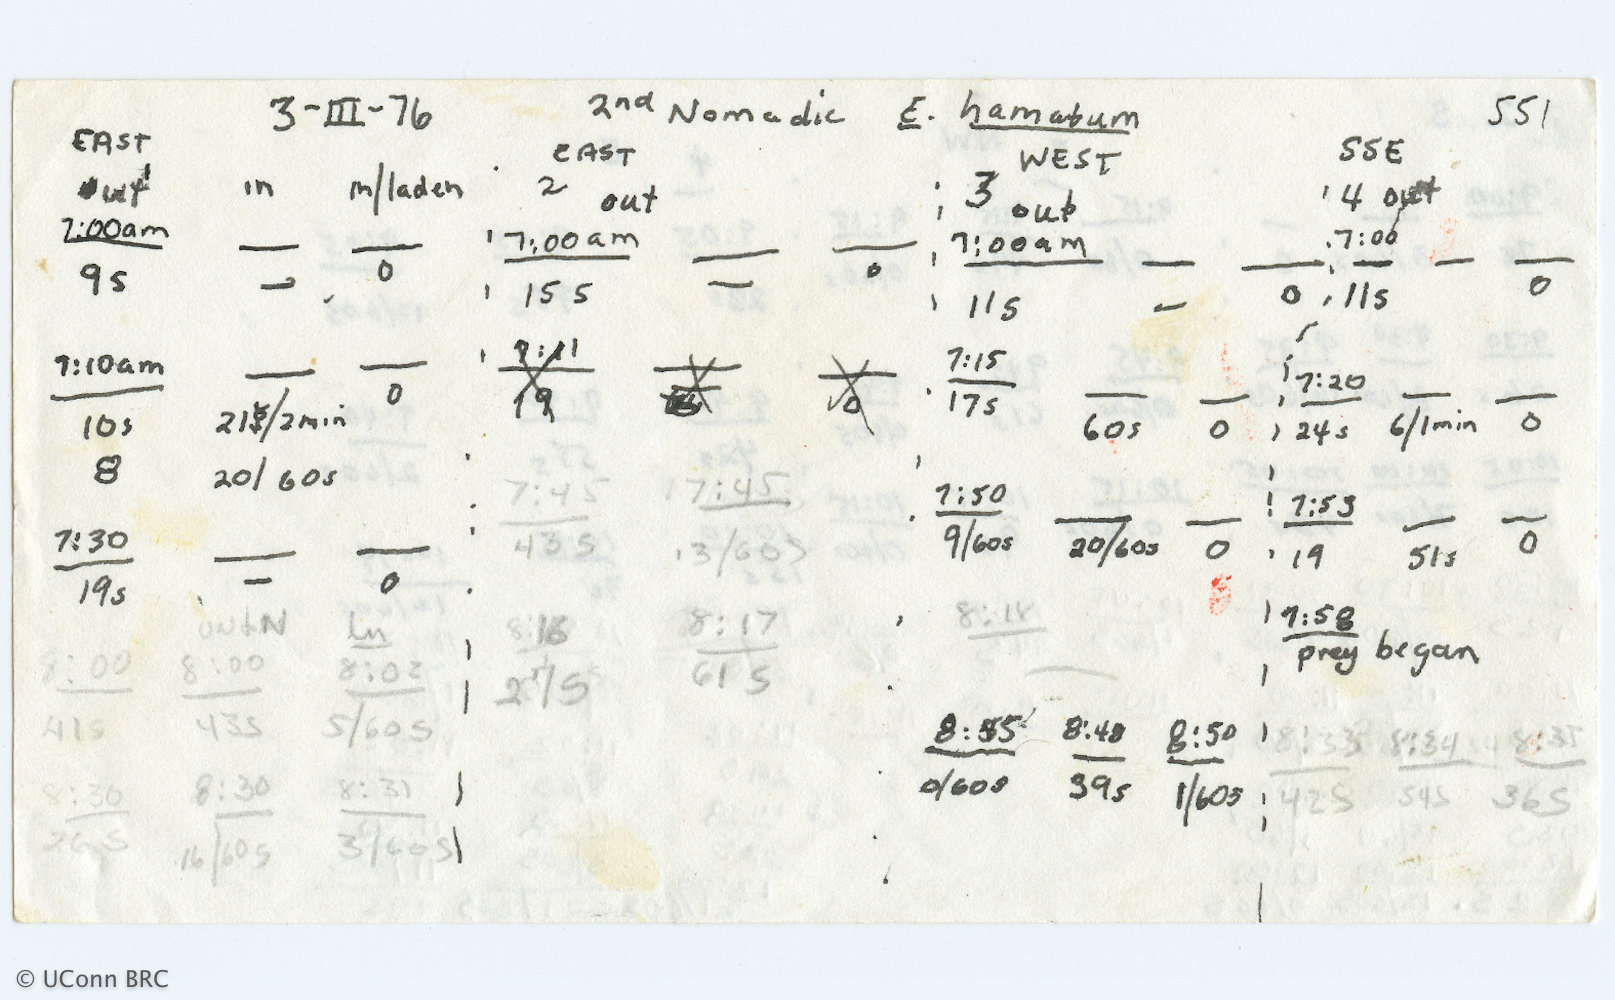 3-III-76 2nd Nomadic E. hamatum 551
EAST EAST WEST SSE
out in in/laden 2 out 3 out 4 out
7:00am — — 7:00am — — 7:00am — — 7:00 — —
9s — 0 15s — 0 11s — 0 11s 0
7:10am — — — — 7:15 — — 7:20 — —
10s 21/2min 0 19 0 17s 60s 0 24s 6/1min 0
8 20/60s
7:45 7:45 7:50 — — 7:53 — —
7:30 — — 43s 13/60s 9/60s 20/60s 0 19 51s 0
19s — 0
in 8:16 8:17 8:18 7:58
8:00 8:00 8:02 61s prey began
41s 43s 5/60s
8:48 8:50 8:33 8:34
8:30 8:30 8:31 0/60s 39s 1/60s 42s 54s 36s
26s 16/60s 3/60s
© UConn BRC